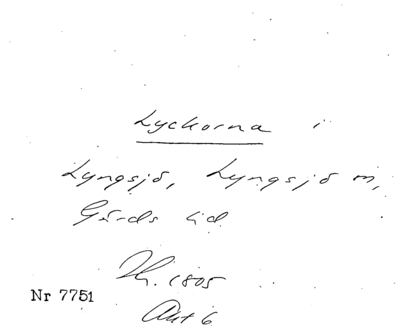 Lyckorna i
Lyngsjö, Lyngsjö m,
Gärds hd
Th. 1805
Nr 7751
Akt 6